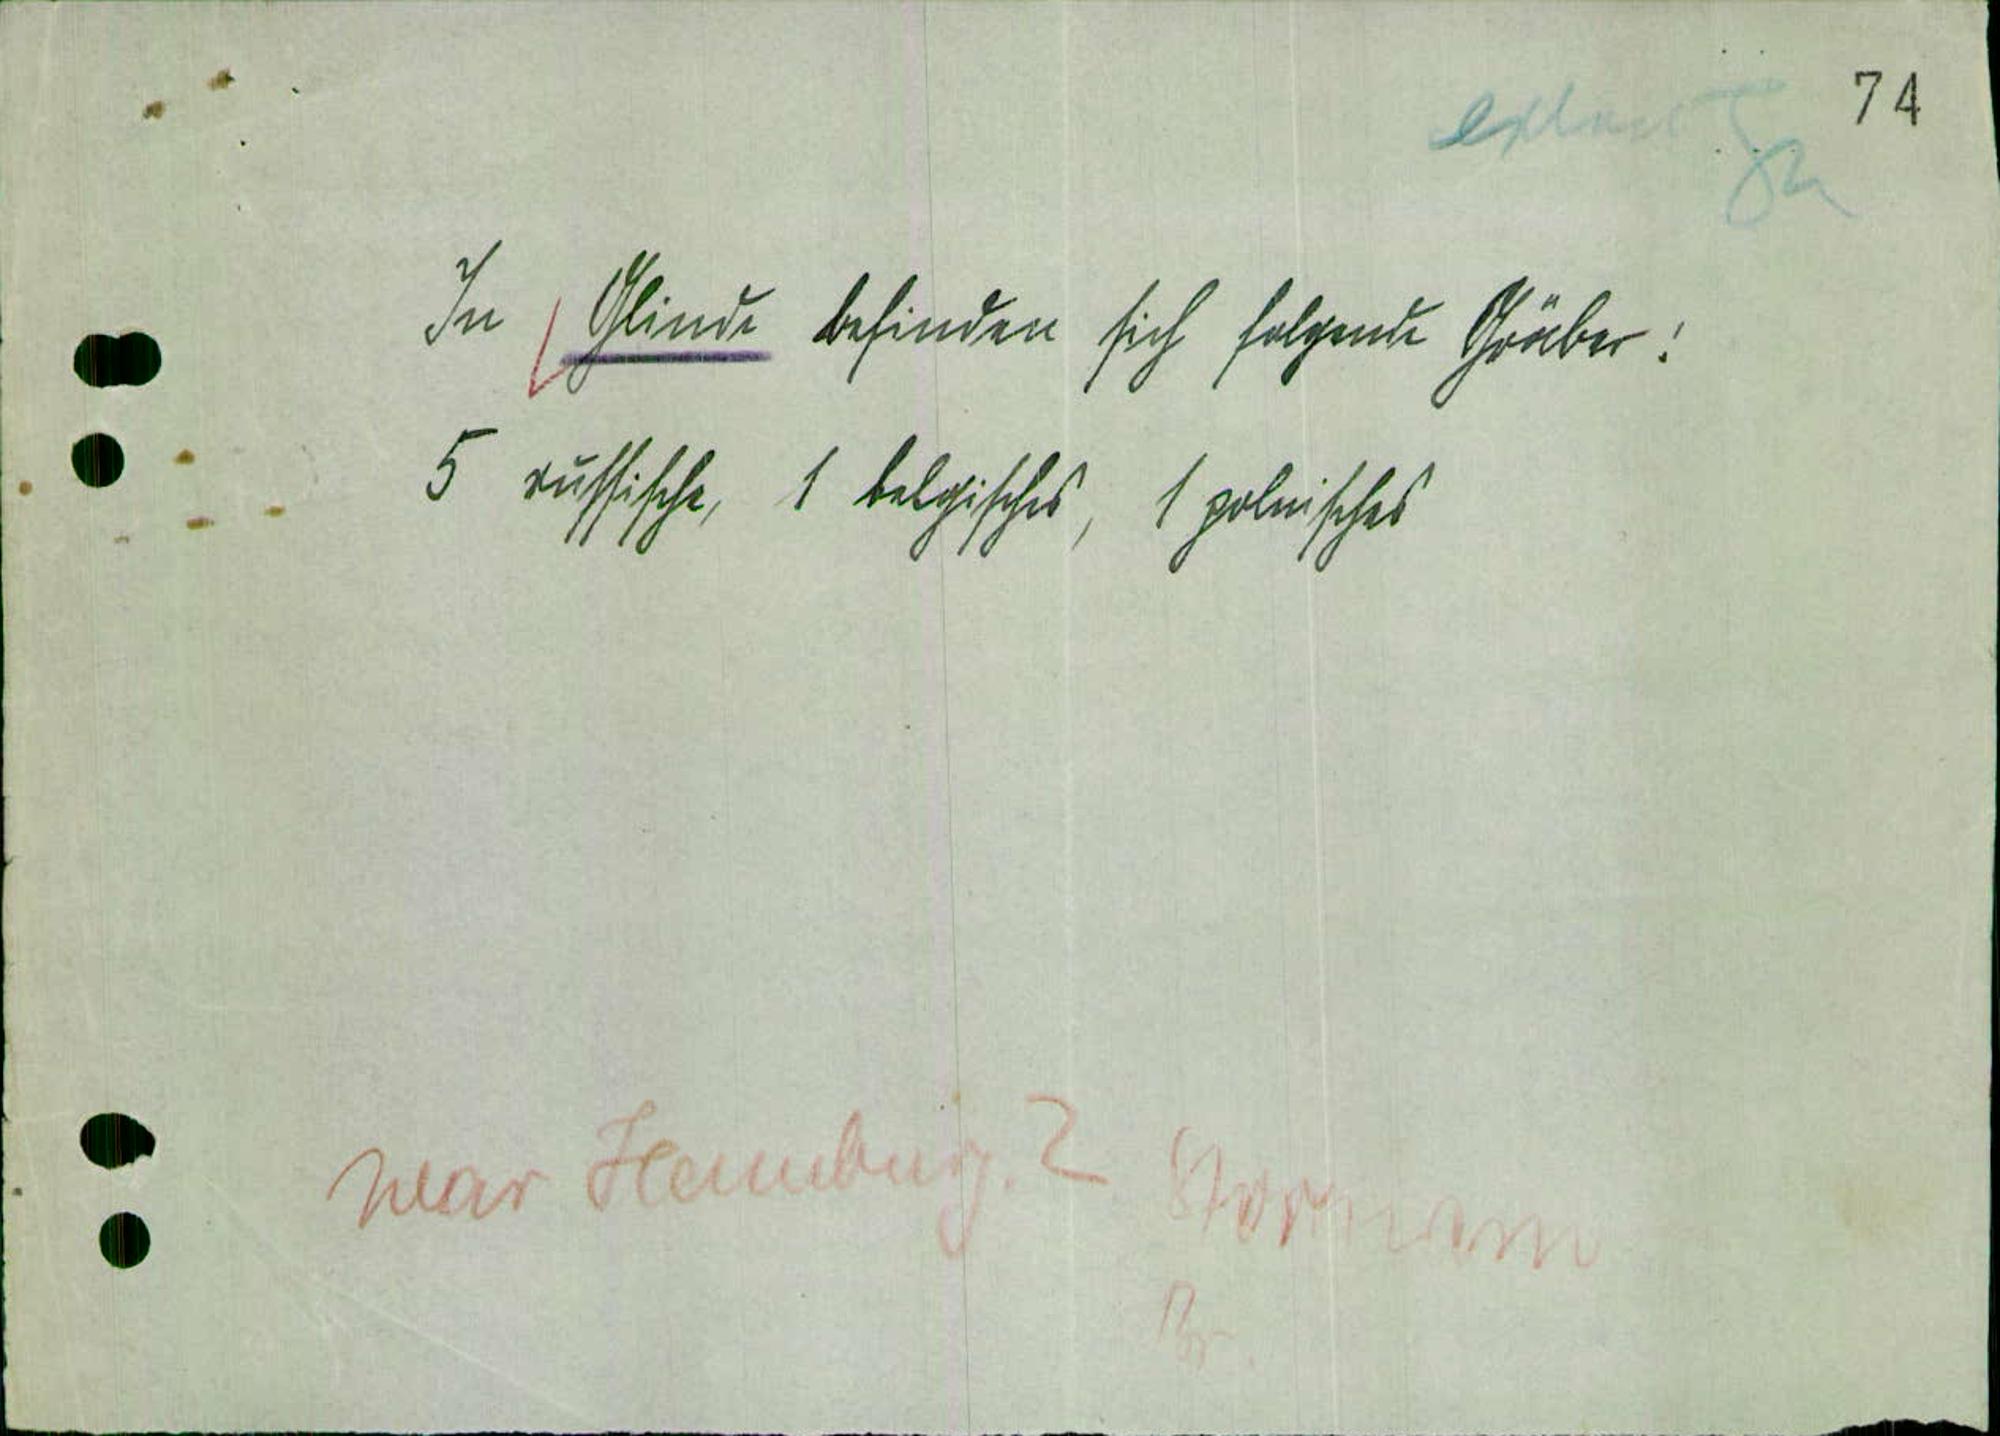 74
In Glinde befinden sich folgende Gräber:
5 russische, 1 belgisches, 1 polnisches
near Hamburg. ? Stormarn
Br.